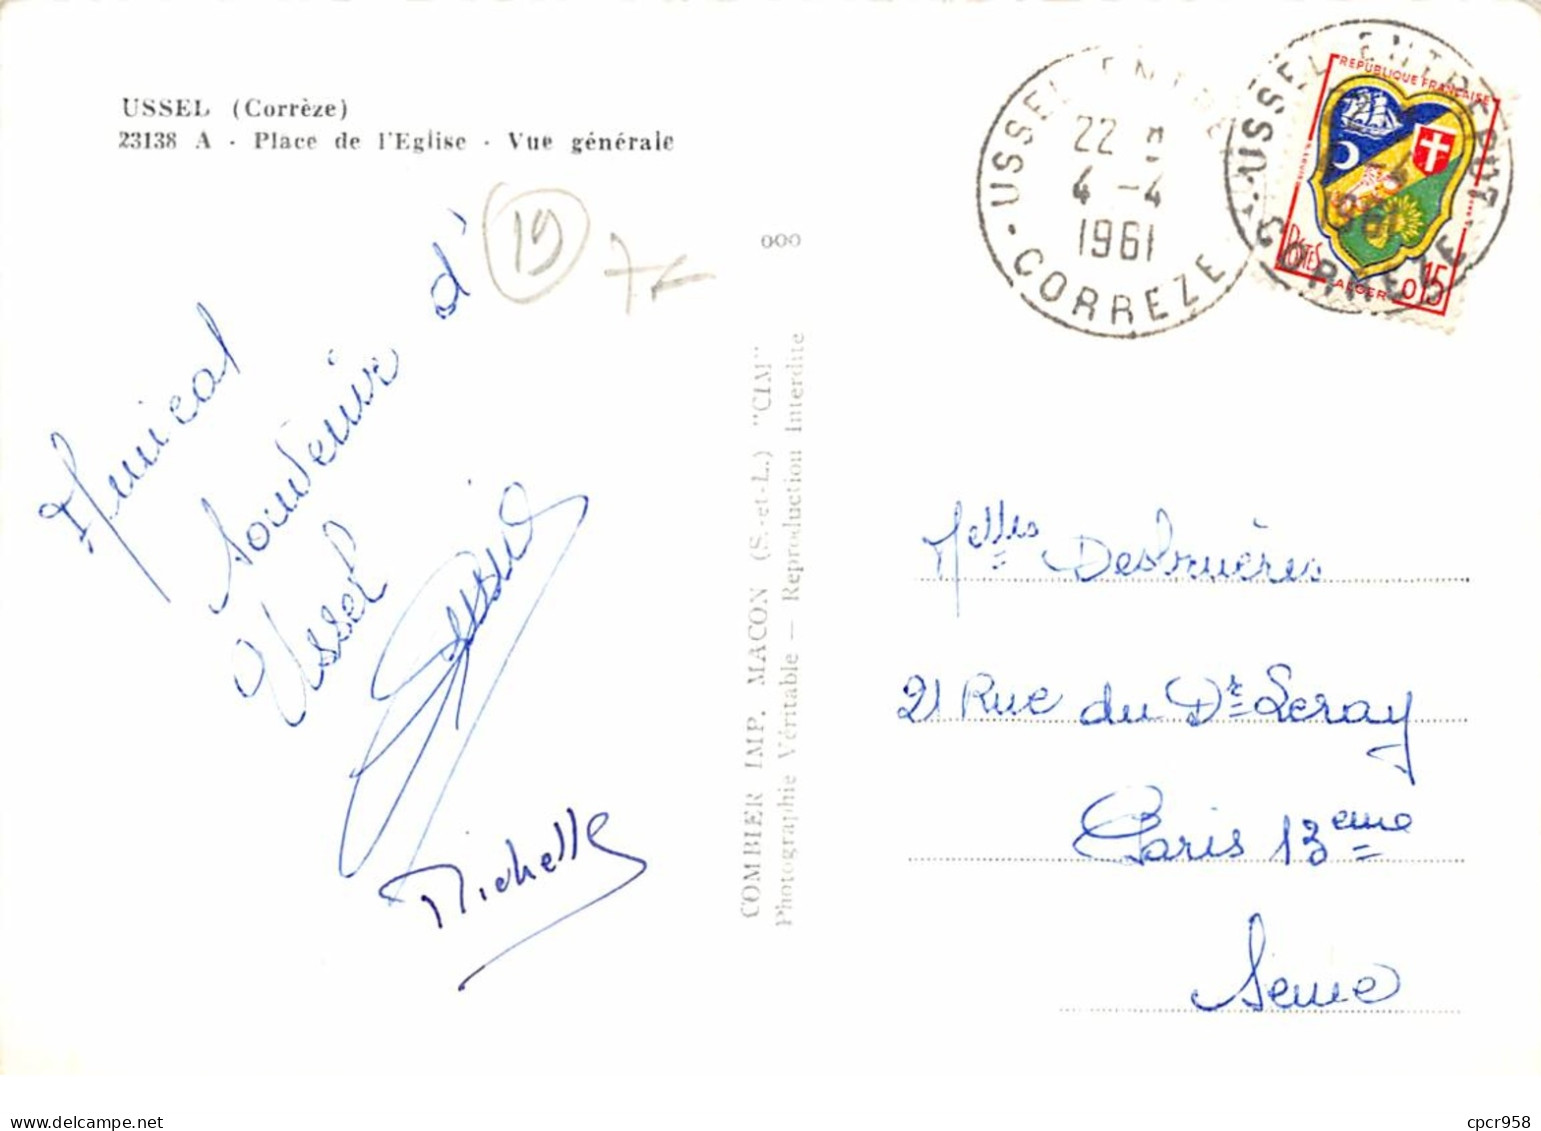 USSEL (Corrèze)
23138 A - Place de l'Eglise - Vue générale
Amical
Souvenir d'
Ussel
Michelle
19
000
COMBIER IMP. MACON (S.-et-L.) "CIM"
Photographie Véritable — Reproduction Interdite
USSEL ENTREPOT
22 H
4 -4
1961
CORREZE
USSEL ENTREPOT
1961
CORREZE
REPUBLIQUE FRANÇAISE
POSTES
ALGER
0,15
Melles Desbruères
21 Rue du Dr Leray
Paris 13eme
Seine
delcampe.net
cpcr958